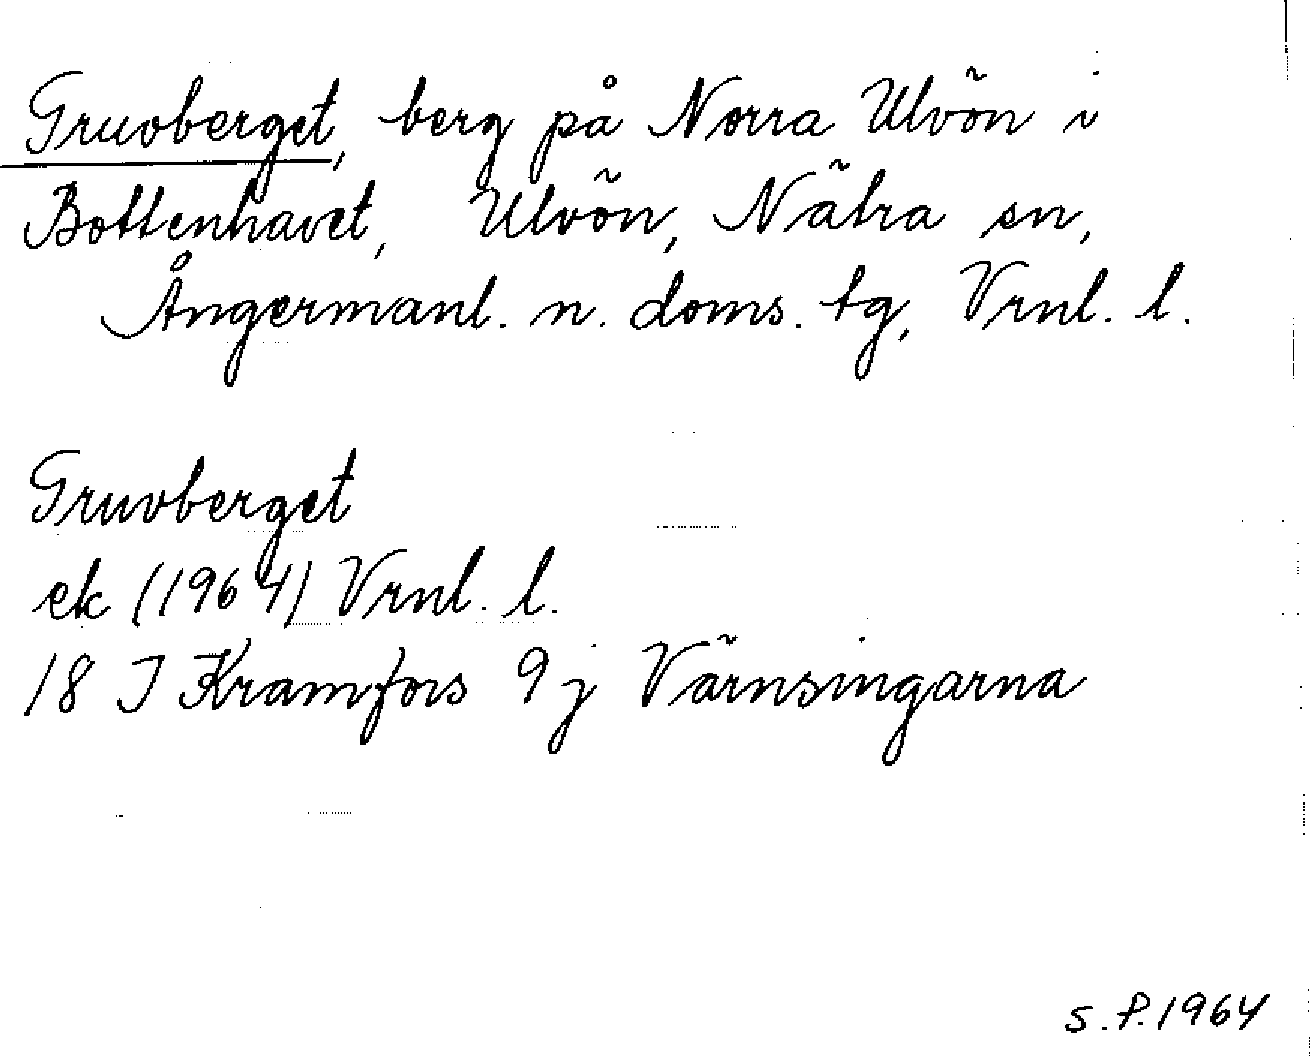 Gruvberget, berg på Norra Ulvön i
Bottenhavet, Ulvön, Nätra sn,
Ångermanl. n. doms. tg, Vrnl. l.
Gruvberget
ek (1964) Vrnl. l.
18 I Kramfors 9j Värnsingarna
S.P.1964